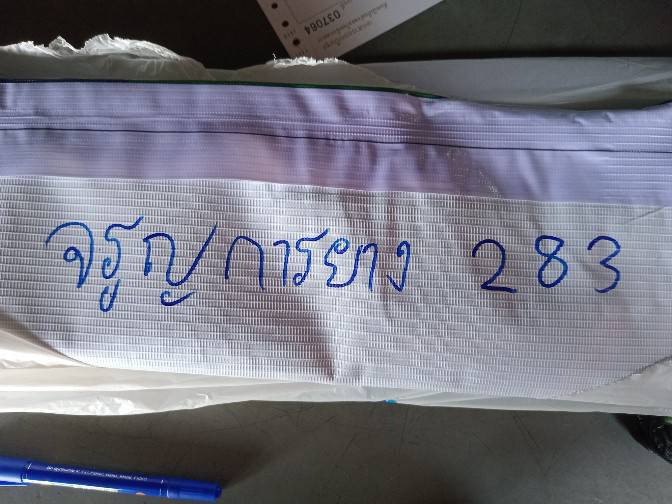 037064
จรูญการยาง 283